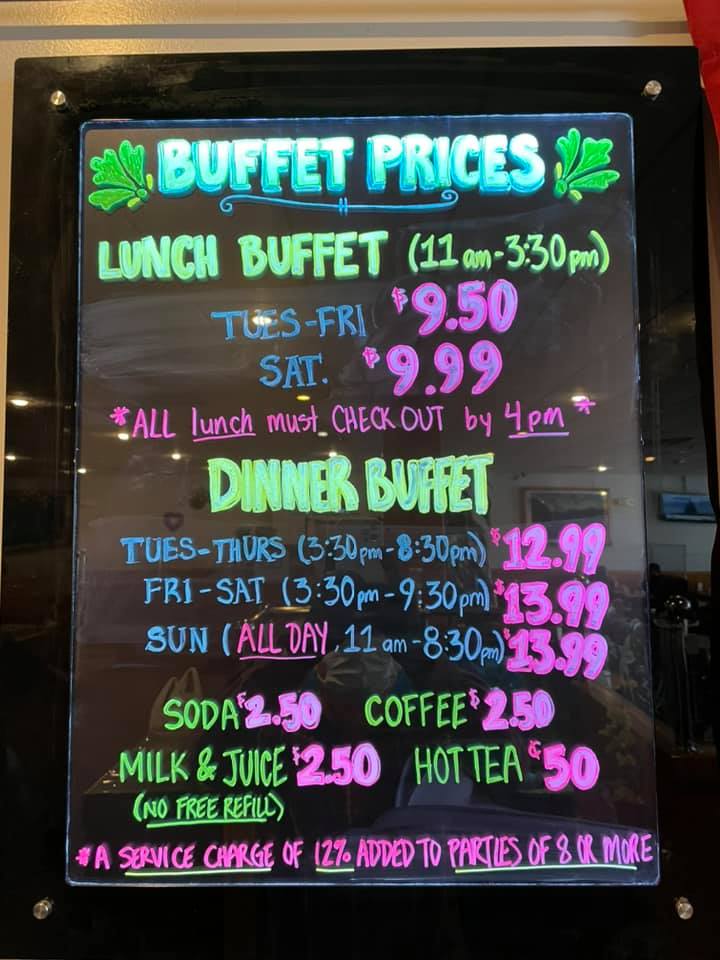 BUFFET PRICES
LUNCH BUFFET (11 am-3:30pm)
TUES-FRI $9.50
SAT. $9.99
*ALL lunch must CHECK OUT by 4pm*
DINNER BUFFET
TUES-THURS (3:30pm-8:30pm) $12.99
FRI-SAT (3:30pm-9:30pm) $13.99
SUN (ALL DAY, 11 am-8:30pm) $13.99
SODA $2.50 COFFEE $2.50
MILK & JUICE $2.50 HOT TEA ¢50
(NO FREE REFILL)
*A SERVICE CHARGE OF 12% ADDED TO PARTIES OF 8 OR MORE